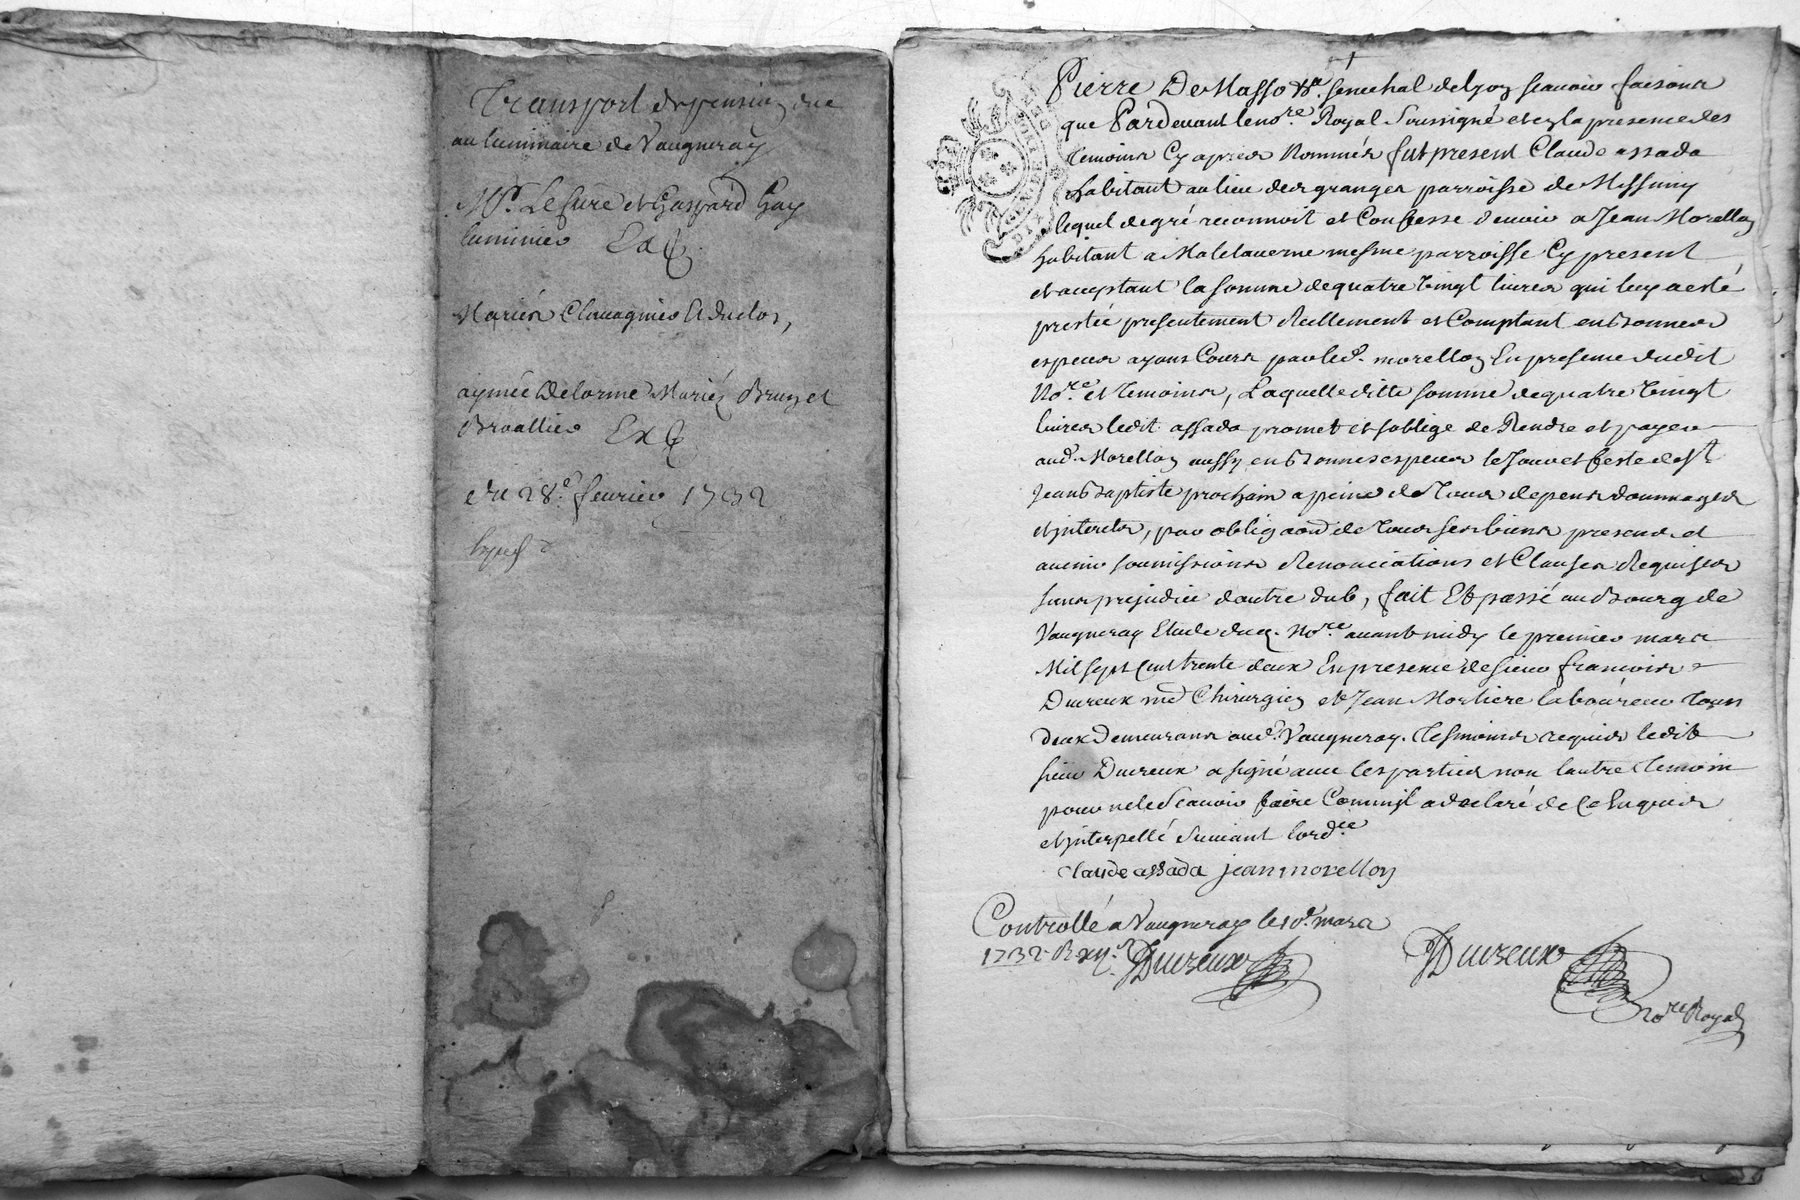 Transport de pension due
au luminaire de Vaugneray
Mr. Le Curé et Gaspard Gay
luminier Exp.
Mariés Clavagnier et duclos,
aymée Delorme Mariéz Brun et
Broallier Exp
du 28e. feurier 1732
Pierre De Masso Ser. senechal de Lyon scauoir faisons
que Pardeuant le nore. Royal Soussigné et en la presence des
temoins Cy apres Nommés fut present Claude assada
habitant au lieu des granges parroisse de Messimy
lequel de gré reconnoit et Confesse deuoir a Jean Morellon
habitant a Malataverne mesme parroisse Cy present
et acceptant la somme de quatre Vingt liures qui luy a esté
prestée presentement Reellement et Comptant en bonnes
especes ayans Cours par led. morellon En presence dudit
Nore. et temoins, Laquelle ditte somme de quatre Vingt
liures ledit assada promet et soblige de Rendre et payer
aud. Morellon aussy en bonnes especes le Jour et feste de St
Jean Baptiste prochain a peine de Tous depens dommages
et interets, par obligaon de Tous ses biens presens et
auenir soumissions Renonciations et Clauses Requises
sans prejudice dautre dub, fait Et passé au Bourg de
Vaugneray Etude dud. Nore. auant midy le premier mars
Mil sept Cent trente deux En presence de sieur francois
Ducreux me Chirurgien et Jean Mortiere laboureur Tous
deux Demeurans aud. Vaugneray. Tesmoins requis ledit
sieur Ducreux a signé auec les parties non lautre temoin
pour ne le Scauoir faire Comme il a declaré de Ce Enquis
et interpellé Suiuant lordce
Claude assada jean morellon
Controllé a Vaugneray le 10e. mars
1732 R xs. JDucreux
JDucreux
nore Royal